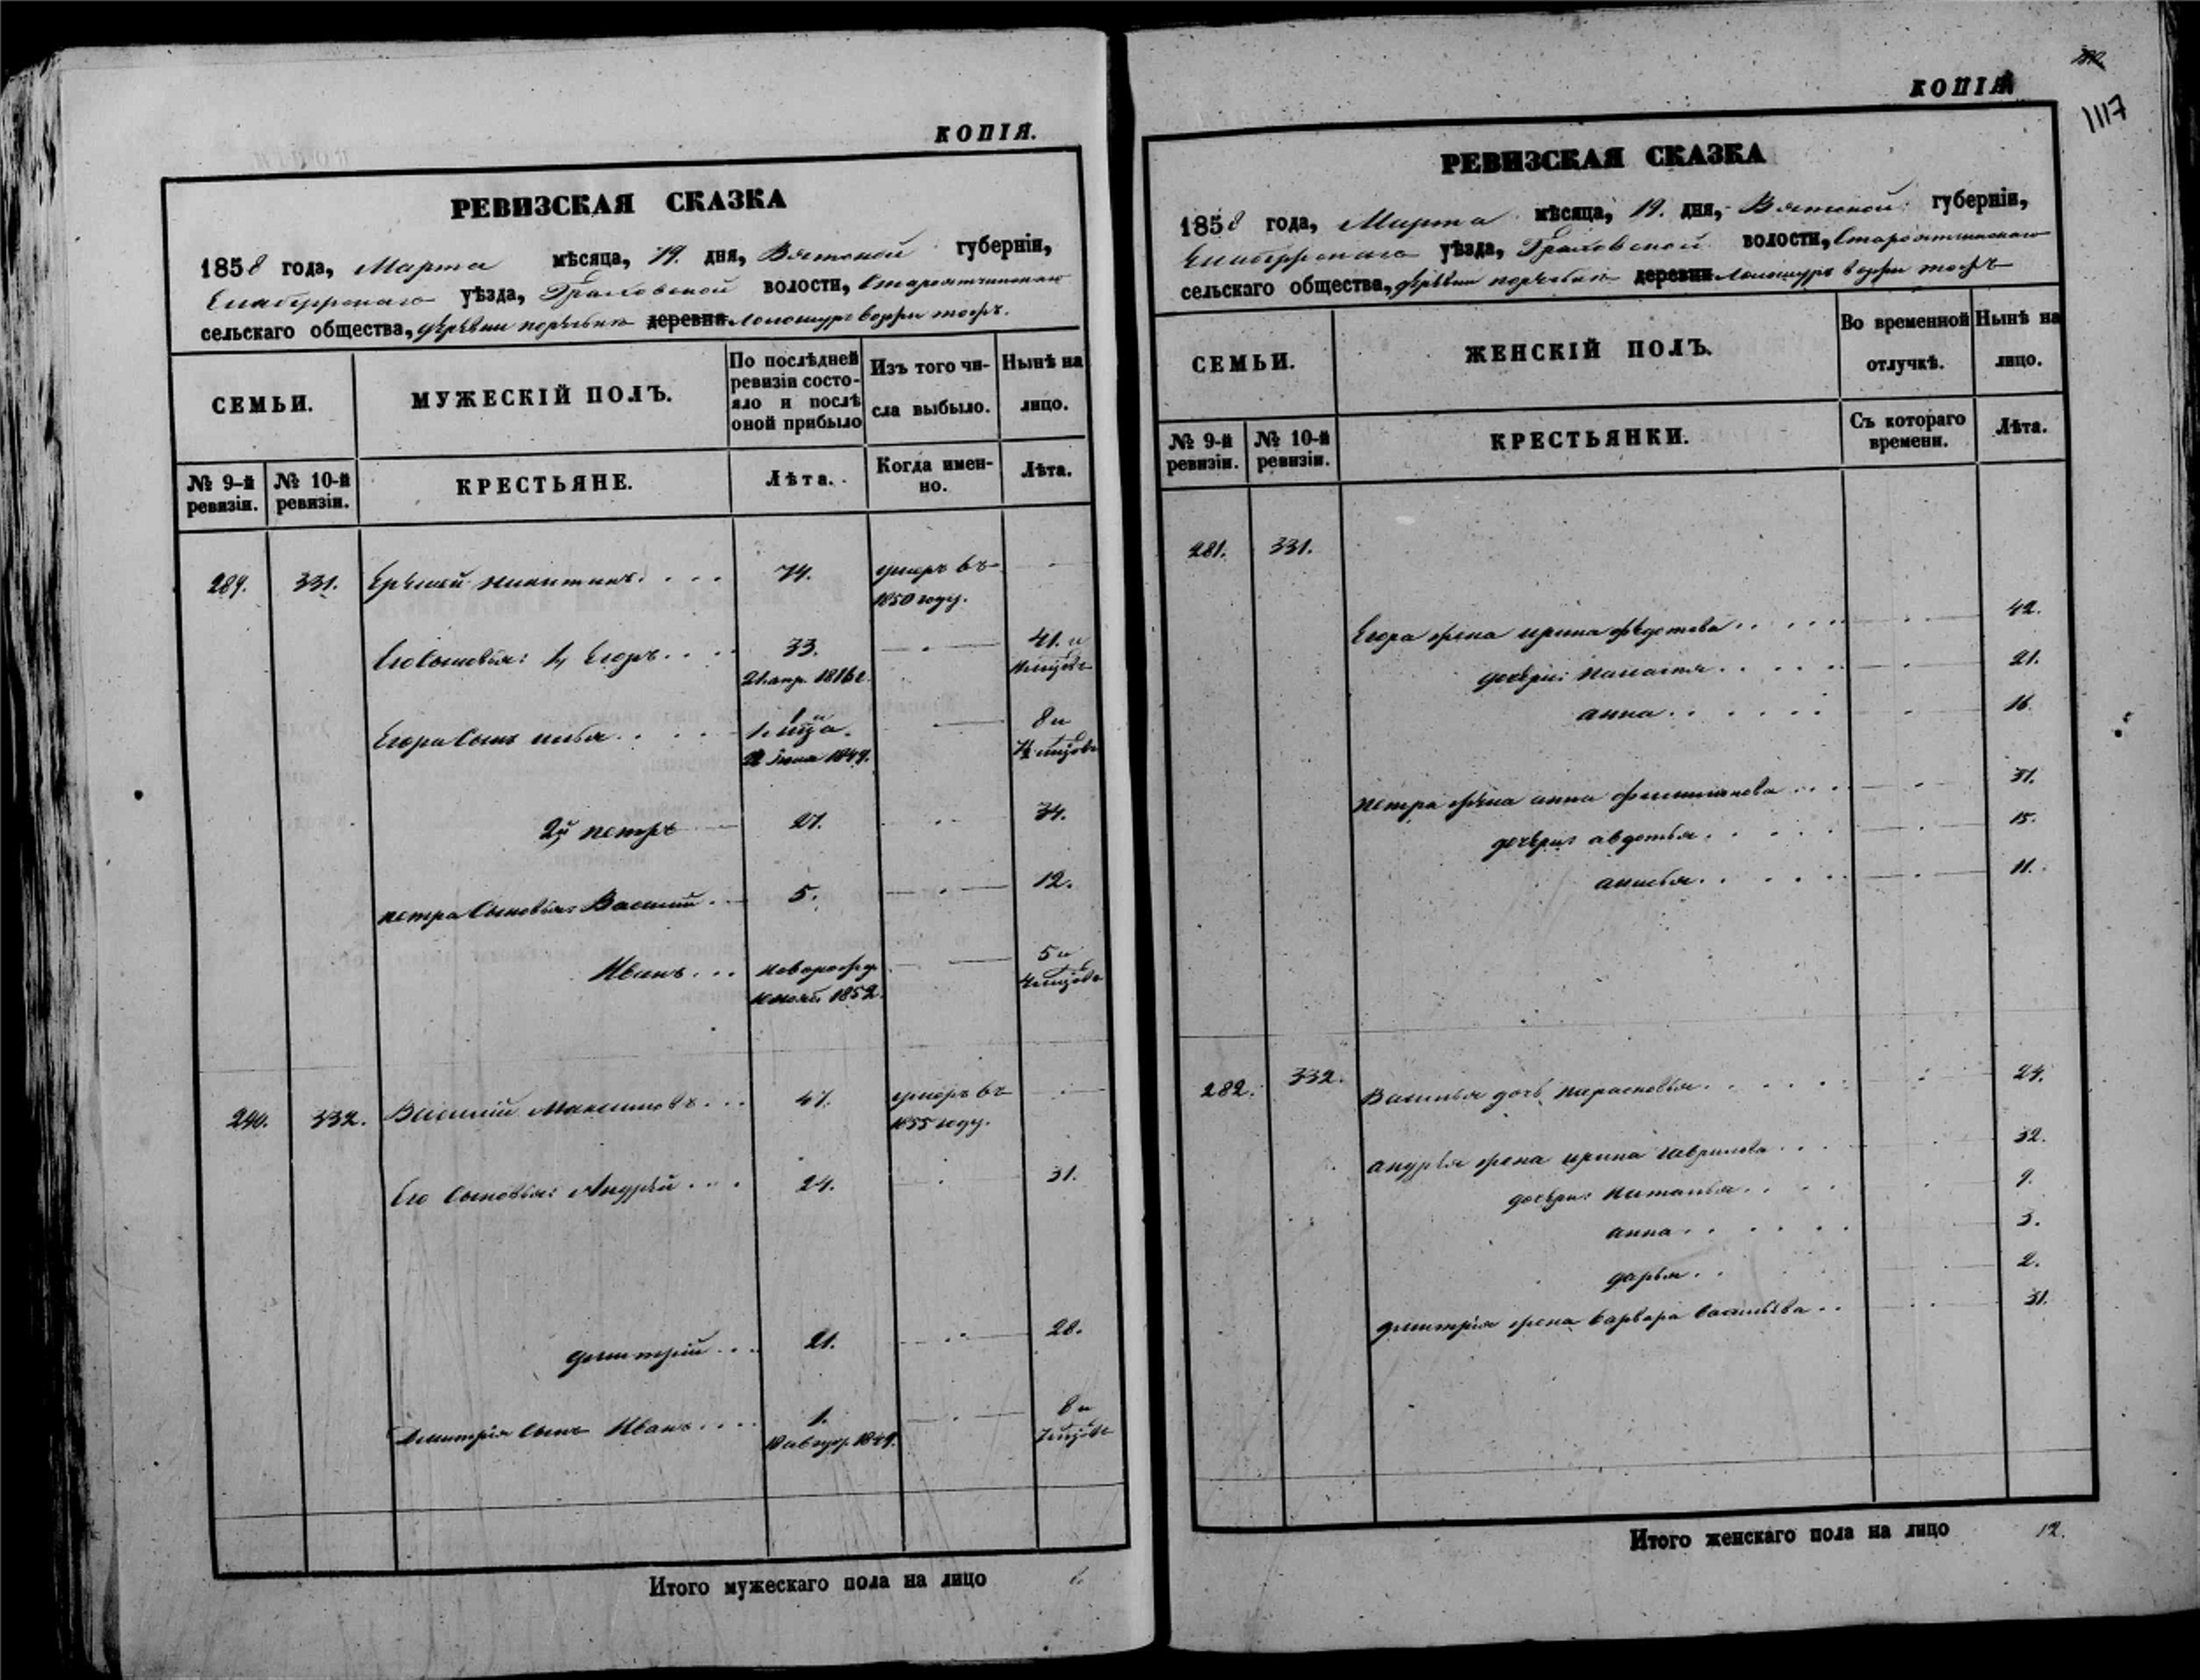 КОПІЯ.
РЕВИЗСКАЯ СКАЗКА
1858 года, Марта мѣсяца, 19. дня, Вятской губерніи,
Елабужскаго уѣзда, Граховской волости,
сельскаго общества, деревни деревни
СЕМЬИ.
МУЖЕСКІЙ ПОЛЪ.
По послѣдней ревизіи состо-
яло и послѣ оной прибыло
Изъ того чи-
сла выбыло.
Нынѣ на
лицо.
№ 9-й ревизіи.
№ 10-й ревизіи.
КРЕСТЬЯНЕ.
Лѣта.
Когда имен-
но.
Лѣта.
289. 331. Никитинъ. . . . 74. умеръ въ
1850 году.
Его сыновья: 1, Егоръ. . . . 33. 41. и
Егора сынъ Илья. . . . 1 и 8 и
1. мца.
22 Іюня 1849.
2й Петръ 27. 34.
Петра сыновья: Василій. . 5. 12.
Иванъ. . . новорожд. 5 и
1852. 4 мцовъ
290. 332. Василій Максимовъ. . . 47. умеръ въ
1855 году.
Его сыновья: Андрей . . . 24. 31.
Дмитрій. . . 21. 28.
Дмитрія сынъ Иванъ. . . . 1. 8 и
10 авгус. 1849. 7 мцовъ
Итого мужескаго пола на лицо
КОПІЯ
1117
РЕВИЗСКАЯ СКАЗКА
1858 года, Марта мѣсяца, 19. дня, Вятской губерніи,
Елабужскаго уѣзда, Граховской волости,
сельскаго общества, деревни деревни
СЕМЬИ.
ЖЕНСКІЙ ПОЛЪ.
Во временной
отлучкѣ.
Нынѣ на
лицо.
№ 9-й ревизіи.
№ 10-й ревизіи.
КРЕСТЬЯНКИ.
Съ котораго
времени.
Лѣта.
281. 331.
Егора жена Ирина Федотова . . . . . 42.
дочери: . . . . . 21.
Анна. . . . . . 16.
Петра жена Анна . . . 31.
дочери: Авдотья. . . . . 15.
. . . . . 11.
282. 332. Василья дочь Парасковья. . . . . . 24.
Андрея жена Ирина Гаврилова . . . 32.
дочери: Наталья. . . . 9.
Анна . . . . . . 3.
Дарья. . . 2.
Дмитрія жена Варвара Васильева . . 31.
Итого женскаго пола на лицо 12.